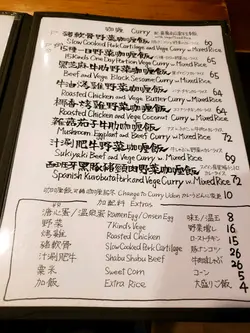 咖喱 Curry
豬軟骨野菜咖喱飯
Slow Cooked Pork Cartilage and Vege Curry w. Mixed Rice 60
15種一日野菜咖喱飯
15 Kinds One Day Portion Vege Curry w. Mixed Rice 65
黑芝麻牛助野菜咖喱飯
Beef and Vege Black Sesame Curry w. Mixed Rice
牛油湯雞野菜咖喱飯
Roasted Chicken and Vege Butter Curry w. Mixed Rice 64
椰香烤雞野菜咖喱飯
Roasted Chicken and Vege Coconut Curry w. Mixed Rice
雜菇茄子牛助咖喱飯
Mushroom Eggplant and Beef Curry w. Mixed Rice 62
汁涮肥牛野菜咖喱飯
Sukiyaki Beef and Vege Curry w. Mixed Rice 64
西班牙黑豚豬頸肉野菜咖喱飯
Spanish Kurobuta Pork and Vege Curry w. Mixed Rice 72
Change to Curry Udon 10
加配料 Extras
溏心蛋/溫泉蛋 Ramen Egg/Onsen Egg 8
野菜 7 Kinds Vege 野菜增し 16
烤雞 Roasted Chicken ローストチキン 15
豬軟骨 Slow Cooked Pork Cartilage 豚ナンコツ 26
汁涮肥牛 Shabu Shabu Beef 26
粟米 Sweet Corn コーン 5
加飯 Extra Rice 大盛りご飯 4